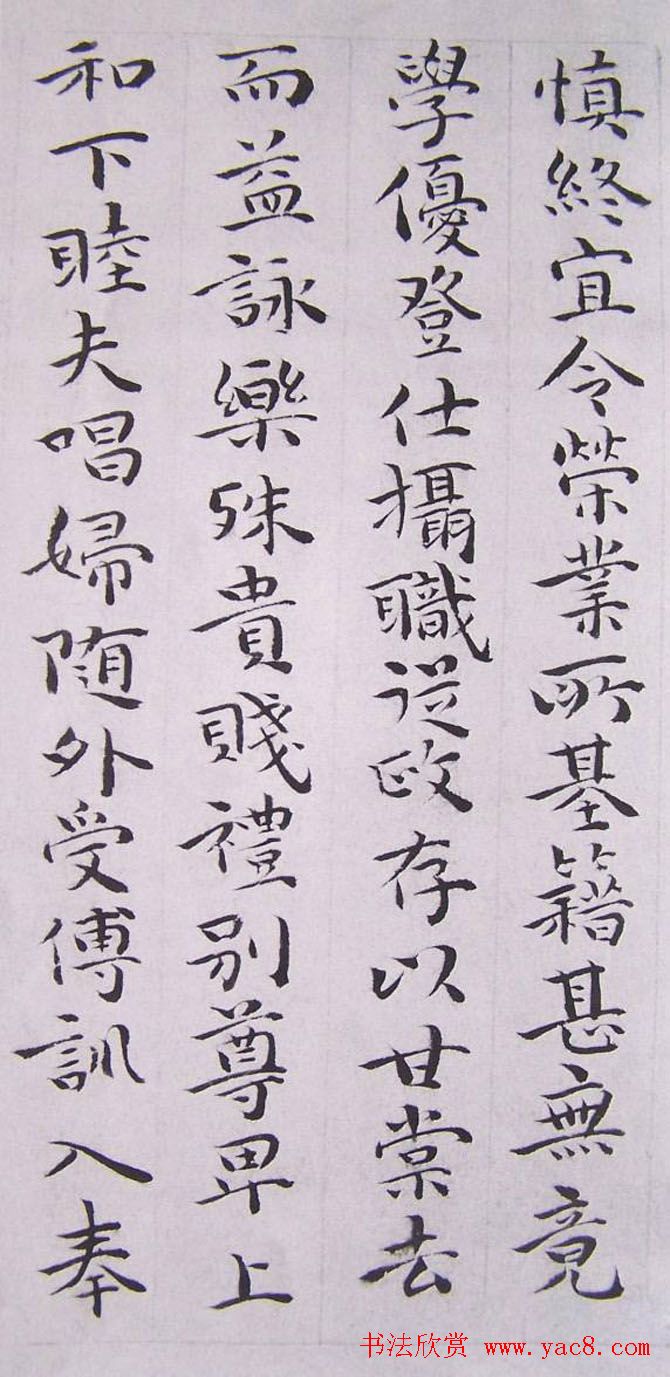 慎終宜令榮業所基籍甚無竟
學優登仕攝職從政存以甘棠去
而益詠樂殊貴賤禮别尊卑上
和下睦夫唱婦随外受傅訓入奉
书法欣赏 www.yac8.com